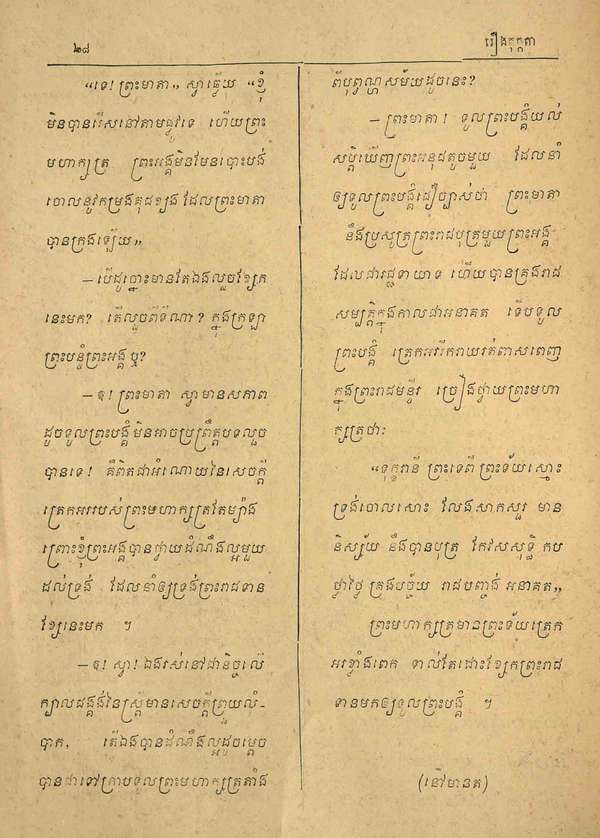 ២៨
រឿងកុក្កុតា
«ទេ! ព្រះមាតា» ស្វាឆ្លើយ «ខ្ញុំ
មិនបានរើសនៅតាមផ្លូវទេ ហើយព្រះ
មហាក្សត្រ ព្រះអង្គមិនមែនបោះបង់
ចោលនូវកម្រងគុជខ្យង ដែលព្រះមាតា
បានក្រងឡើយ»
— បើដូច្នោះមានតែឯងលួចខ្សែក
នេះមក? តើលួចពីទីណា? ក្នុងក្រឡា
ព្រះបន្ទំព្រះអង្គ ឬ?
— ឧ! ព្រះមាតា ស្វាមានសភាព
ដូចទូលព្រះបង្គំមិនអាចប្រព្រឹត្តបទលួច
បានទេ! គឺពិតជាអំណោយនៃសេចក្ដី
ត្រេកអររបស់ព្រះមហាក្សត្រតែម្យ៉ាង
ព្រោះខ្ញុំព្រះអង្គបានថ្វាយដំណឹងល្អមួយ
ដល់ទ្រង់ ដែលនាំឲ្យទ្រង់ព្រះរាជទាន
ខ្សែនេះមក ។
— ឧ! ស្វា! ឯងរស់នៅជានិច្ចលើ
ក្បាលដង្គង់នៃស្ត្រីមានសេចក្ដីព្រួយលំ-
បាក, តើឯងបានដំណឹងល្អដូចម្ដេច
បានជាទៅក្រាបទូលព្រះមហាក្សត្រតាំង
ពីបុព្វណ្ហសម័យដូចនេះ?
— ព្រះមាតា! ទូលព្រះបង្គំយល់
សប្ដិឃើញព្រះអនុជតូចមួយ ដែលនាំ
ឲ្យទូលព្រះបង្គំជឿច្បាស់ថា ព្រះមាតា
នឹងប្រសូត្រព្រះរាជបុត្រមួយព្រះអង្គ
ដែលជារជ្ជទាយាទ ហើយបានគ្រងរាជ
សម្បត្តិក្នុងកាលជាអនាគត ទើបទូល
ព្រះបង្គំ ត្រេកអររីករាយរត់ពាសពេញ
ក្នុងព្រះរាជមន្ទីរ ច្រៀងថ្វាយព្រះមហា
ក្សត្រថាៈ
«ទុក្ខរានី ព្រះទេពី ព្រះទ័យស្មោះ
ទ្រង់ចោលសោះ លែងសាកសួរ មាន
និស្ស័យ នឹងបានបុត្រ កែវសសុទ្ធិ កប
ថ្លាថ្លៃ គ្រងបច្ច័យ រាជបញ្ចង់ អនាគត»
ព្រះមហាក្សត្រមានព្រះទ័យត្រេក
អរខ្លាំងពេក ទាល់តែដោះខ្សែកព្រះរាជ
ទានមកឲ្យទូលព្រះបង្គំ ។
(នៅមានត)